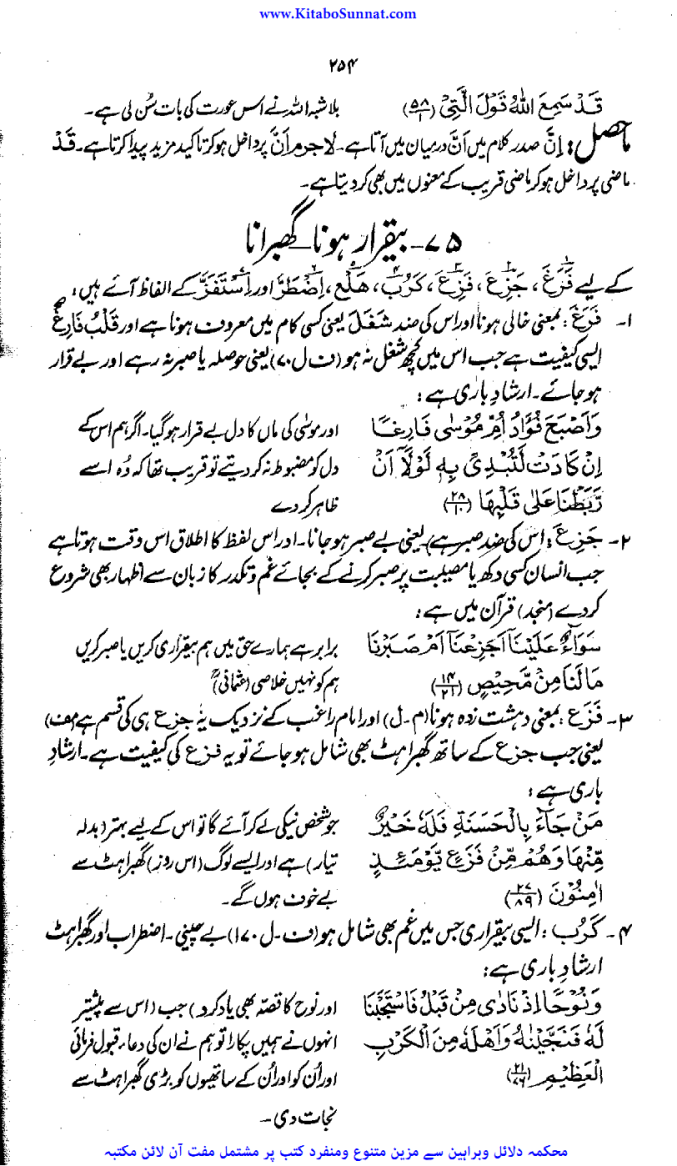 www.KitaboSunnat.com
۲۵۴
قَدْ سَمِعَ اللّٰهُ قَوْلَ الَّتِیْ (۵۸/۱) بلاشبہ اللہ نے اس عورت کی بات سُن لی ہے۔
ماحصل: اِنَّ صدر کلام میں اَنَّ درمیان میں آتا ہے۔ لاجرم اَنَّ پر داخل ہو کر تاکید مزید پیدا کرتا ہے۔ قَدْ
ماضی پر داخل ہو کر ماضی قریب کے معنوں میں بھی کر دیتا ہے۔
۷۵۔ بیقرار ہونا۔ گھبرانا
کے لیے فَرَغَ، جَزِعَ، فَزِعَ، كَرُبَ، هَلِعَ، اِضْطَرَّ اور اِسْتَفَزَّ کے الفاظ آئے ہیں:
۱۔ فَرَغَ: بمعنی خالی ہونا اور اس کی ضد شَغَلَ یعنی کسی کام میں مصروف ہونا ہے اور قَلْبٌ فَارِغٌ
ایسی کیفیت ہے جب اس میں کچھ شغل نہ ہو (ف ل ۷۰) یعنی حوصلہ یا صبر نہ رہے اور بے قرار
ہو جائے۔ ارشادِ باری ہے:
وَاَصْبَحَ فُؤَادُ اُمِّ مُوْسٰی فَارِغًا اور موسٰی کی ماں کا دل بے قرار ہو گیا۔ اگر ہم اس کے
اِنْ كَادَتْ لَتُبْدِیْ بِهٖ لَوْلَاۤ اَنْ دل کو مضبوط نہ کر دیتے تو قریب تھا کہ وُہ اسے
رَّبَطْنَا عَلٰی قَلْبِهَا (۲۸/۱۰) ظاہر کر دے
۲۔ جَزِعَ: (اس کی ضد صبر ہے) یعنی بے صبر ہو جانا۔ اور اس لفظ کا اطلاق اس وقت ہوتا ہے
جب انسان کسی دکھ یا مصیبت پر صبر کرنے کے بجائے غم و تکدر کا زبان سے اظہار بھی شروع
کر دے (منجد) قرآن میں ہے:
سَوَآءٌ عَلَیْنَاۤ اَجَزِعْنَاۤ اَمْ صَبَرْنَا برابر ہے ہمارے حق میں ہم بیقراری کریں یا صبر کریں
مَالَنَا مِنْ مَّحِیْصٍ (۱۴/۲۱) ہم کو نہیں خلاصی (عثمانیؒ)
۳۔ فَزَعَ: بمعنی دہشت زدہ ہونا (م۔ل) اور امام راغب کے نزدیک یہ جزع ہی کی قسم ہے (مف)
یعنی جب جزع کے ساتھ گھبراہٹ بھی شامل ہو جائے تو یہ فزع کی کیفیت ہے۔ ارشادِ
باری ہے:
مَنْ جَآءَ بِالْحَسَنَةِ فَلَهٗ خَیْرٌ جو شخص نیکی لے کر آئے گا تو اس کے لیے بہتر (بدلہ
مِّنْهَا وَهُمْ مِّنْ فَزَعٍ یَّوْمَئِذٍ تیار) ہے اور ایسے لوگ (اس روز) گھبراہٹ سے
اٰمِنُوْنَ (۲۷/۸۹) بے خوف ہوں گے۔
۴۔ كَرُبَ: ایسی بیقراری جس میں غم بھی شامل ہو (ف۔ل ۱۷۰) بے چینی۔ اضطراب اور گھبراہٹ
ارشاد باری ہے:
وَنُوْحًا اِذْ نَادٰی مِنْ قَبْلُ فَاسْتَجَبْنَا اور نوح کا قصّہ بھی یاد کرو) جب (اس سے پیشتر
لَهٗ فَنَجَّیْنٰهُ وَاَهْلَهٗ مِنَ الْكَرْبِ انہوں نے ہمیں پکارا تو ہم نے ان کی دعاء قبول فرمائی
الْعَظِیْمِ (۲۱/۷۶) اور اُن کو اور اُن کے ساتھیوں کو بڑی گھبراہٹ سے
نجات دی۔
محکمہ دلائل وبراہین سے مزین متنوع ومنفرد کتب پر مشتمل مفت آن لائن مکتبہ